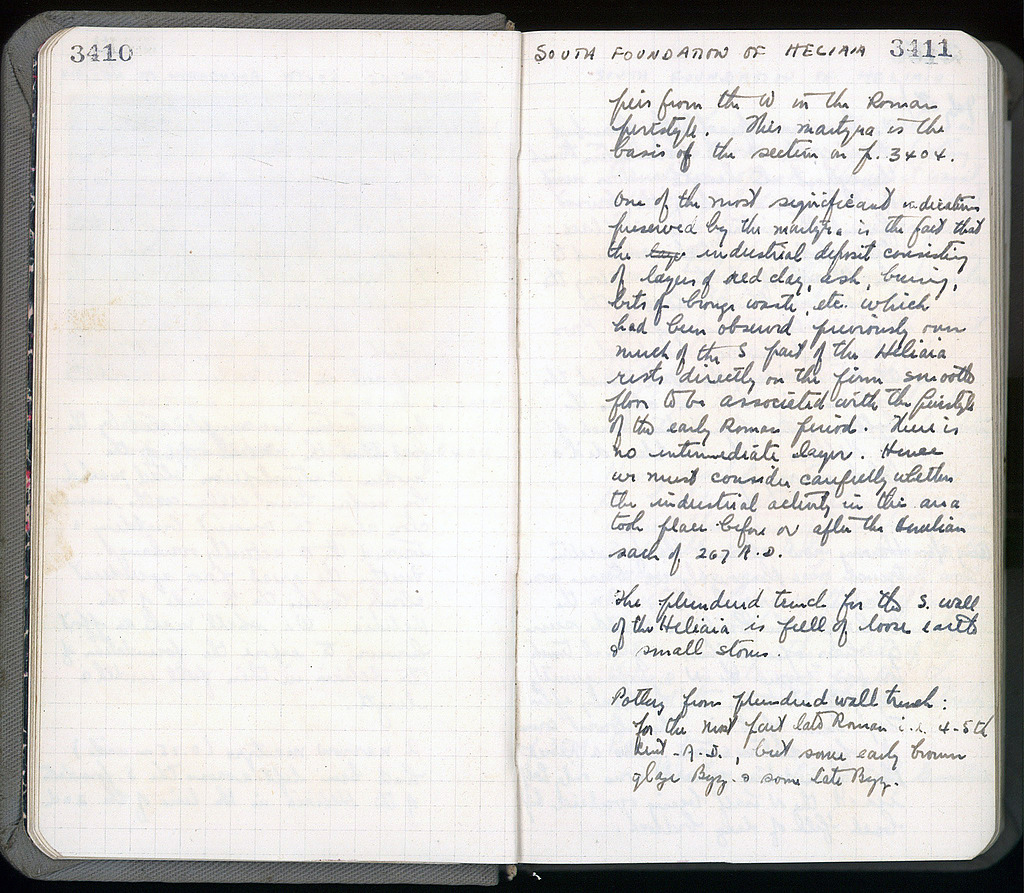 3410
SOUTH FOUNDATION OF HELIAIA 3411
pier from the W in the Roman
peristyle. This martyra is the
basis of the section on p. 3404.
One of the most significant indications
preserved by the martyra is the fact that
the industrial deposit consisting
of layers of red clay, ash, burning,
bits of bronze waste, etc. which
had been observed previously over
much of the S part of the Heliaia
rests directly on the firm smooth
floor to be associated with the peristyle
of the early Roman period. There is
no intermediate layer. Hence
we must consider carefully whether
the industrial activity in this area
took place before or after the Herulian
sack of 267 A.D.
The plundered trench for the S. wall
of the Heliaia is full of loose earth
& small stones.
Pottery from plundered wall trench:
for the most part late Roman i.e. 4-5th
cent. A.D., but some early brown
glaze Byz. & some late Byz.